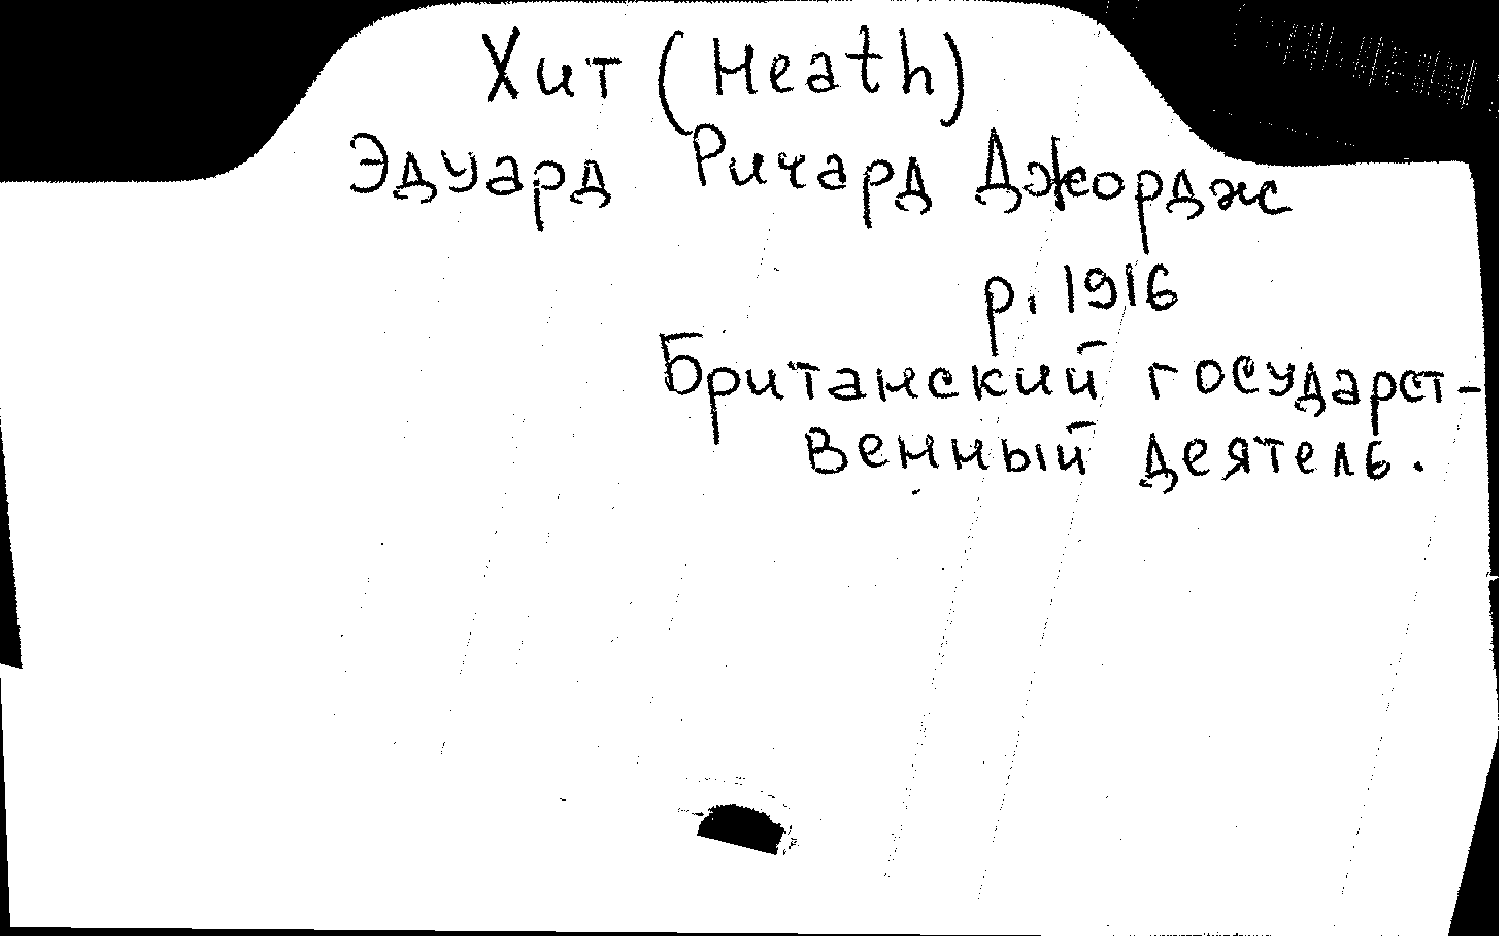 Хит (Heath)
Эдуард Ричард Джордж
р. 1916
Британский государст-
венный деятель.